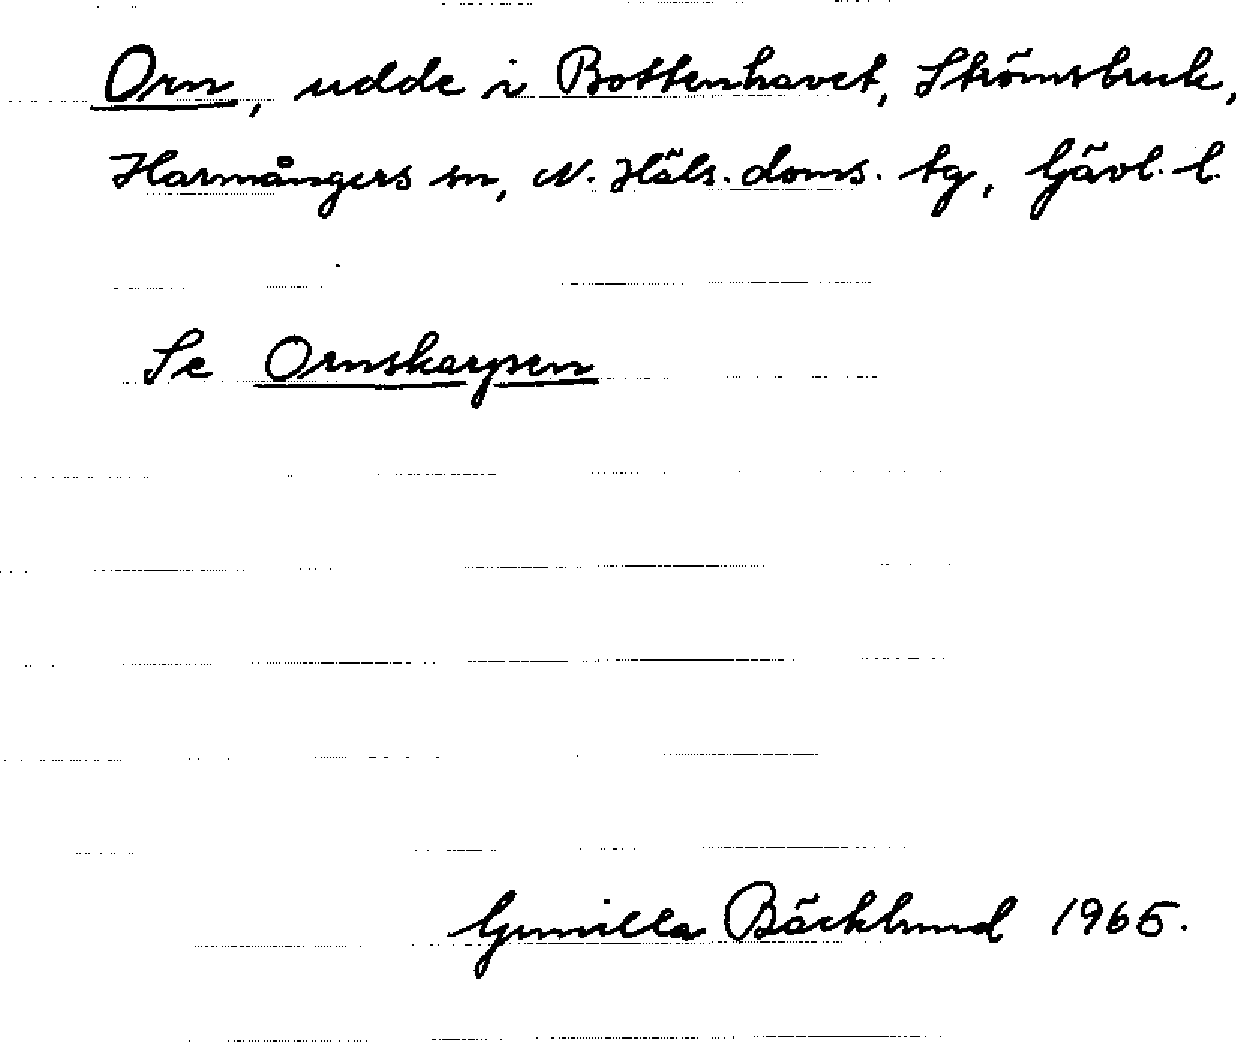 Orn, udde i Bottenhavet, Strömsbruk,
Harmångers sn, N. Häls. doms. tg, Gävl. l.
Se Ornskarpen
Gunilla Bäcklund 1965.